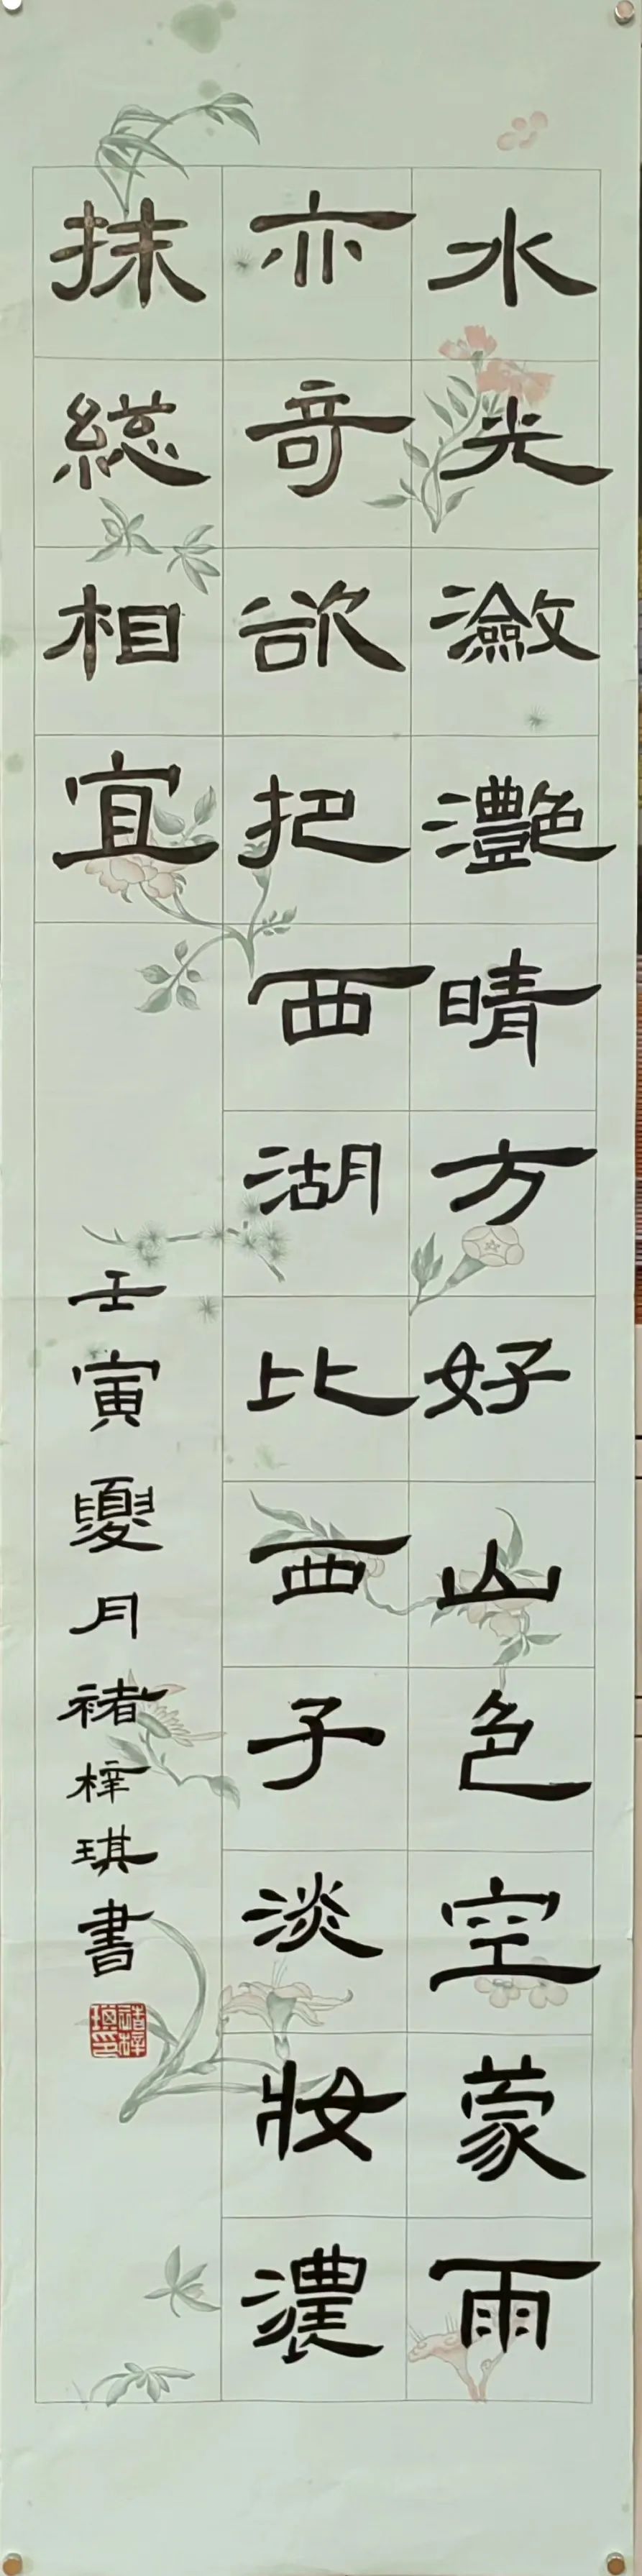 水光瀲灩晴方好山色空蒙雨
亦奇欲把西湖比西子淡妝濃
抹総相宜
壬寅夏月褚梓琪書
褚梓琪印